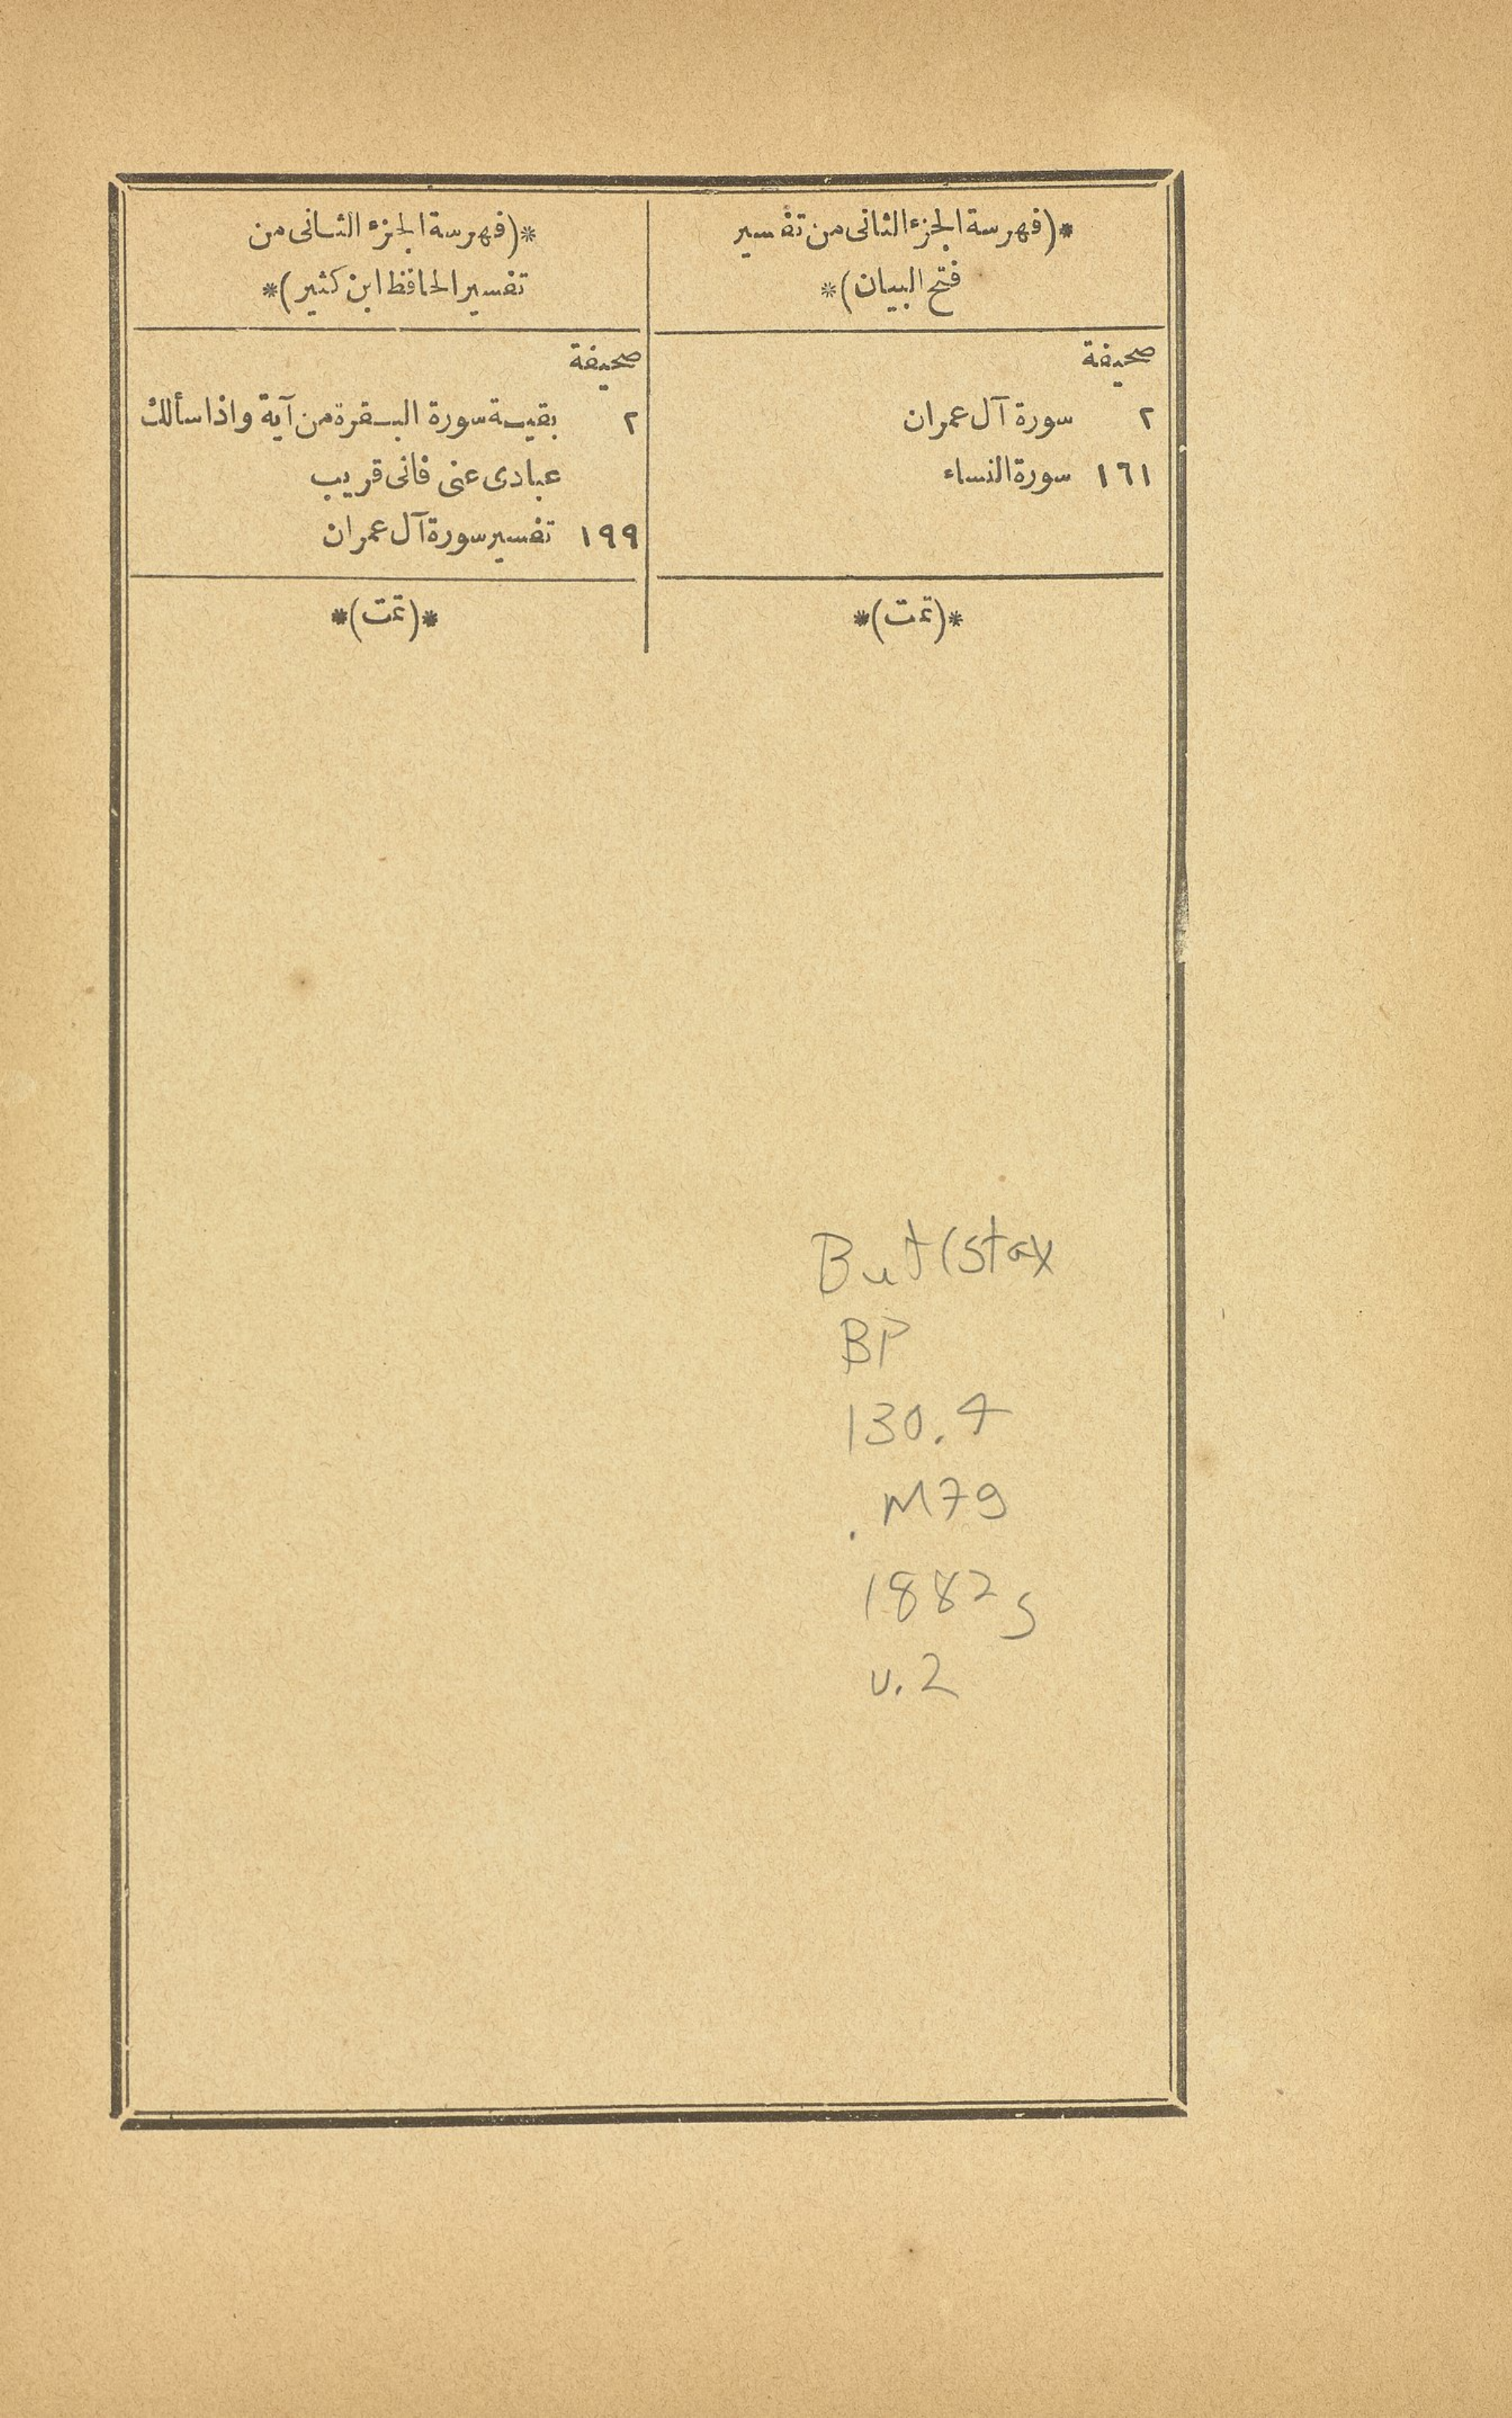 *(فهرسة الجزء الثانى من تفسير
فتح البيان)*
صحيفة
٢ سورة آل عمران
١٦١ سورة النساء
*(تمت)*
*(فهرسة الجزء الثانى من
تفسير الحافظ ابن كثير)*
صحيفة
٢ بقية سورة البقرة من آية واذا سألك
عبادى عنى فانى قريب
١٩٩ تفسير سورة آل عمران
*(تمت)*
But(stax
BP
130.4
.M79
1882s
v.2